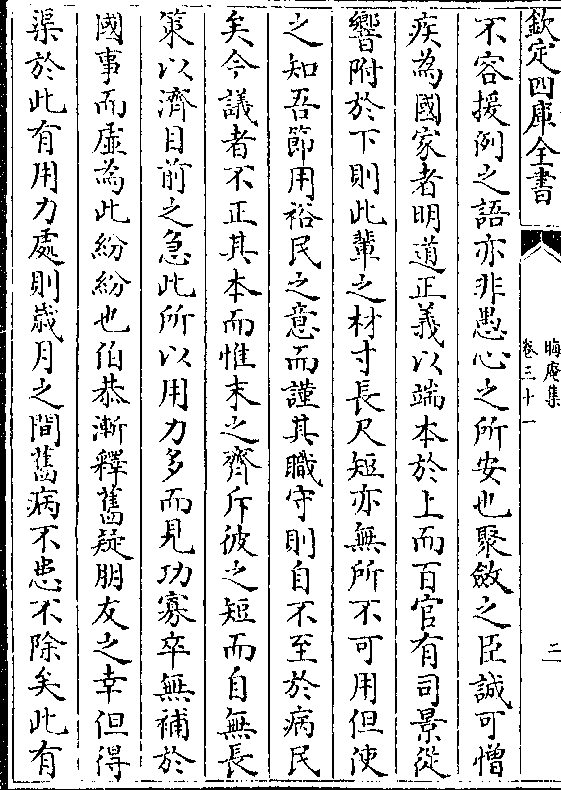 欽定四庫全書
晦庵集
卷三十一
二
不容援例之語亦非愚心之所安也聚斂之臣誠可憎
疾為國家者明道正義以端本於上而百官有司景從
響附於下則此輩之材寸長尺短亦無所不可用但使
之知吾節用裕民之意而謹其職守則自不至於病民
矣今議者不正其本而惟末之齊斥彼之短而自無長
策以濟目前之急此所以用力多而見功寡卒無補於
國事而虛為此紛紛也伯恭漸釋舊疑朋友之幸但得
渠於此有用力處則歲月之間舊病不患不除矣此有